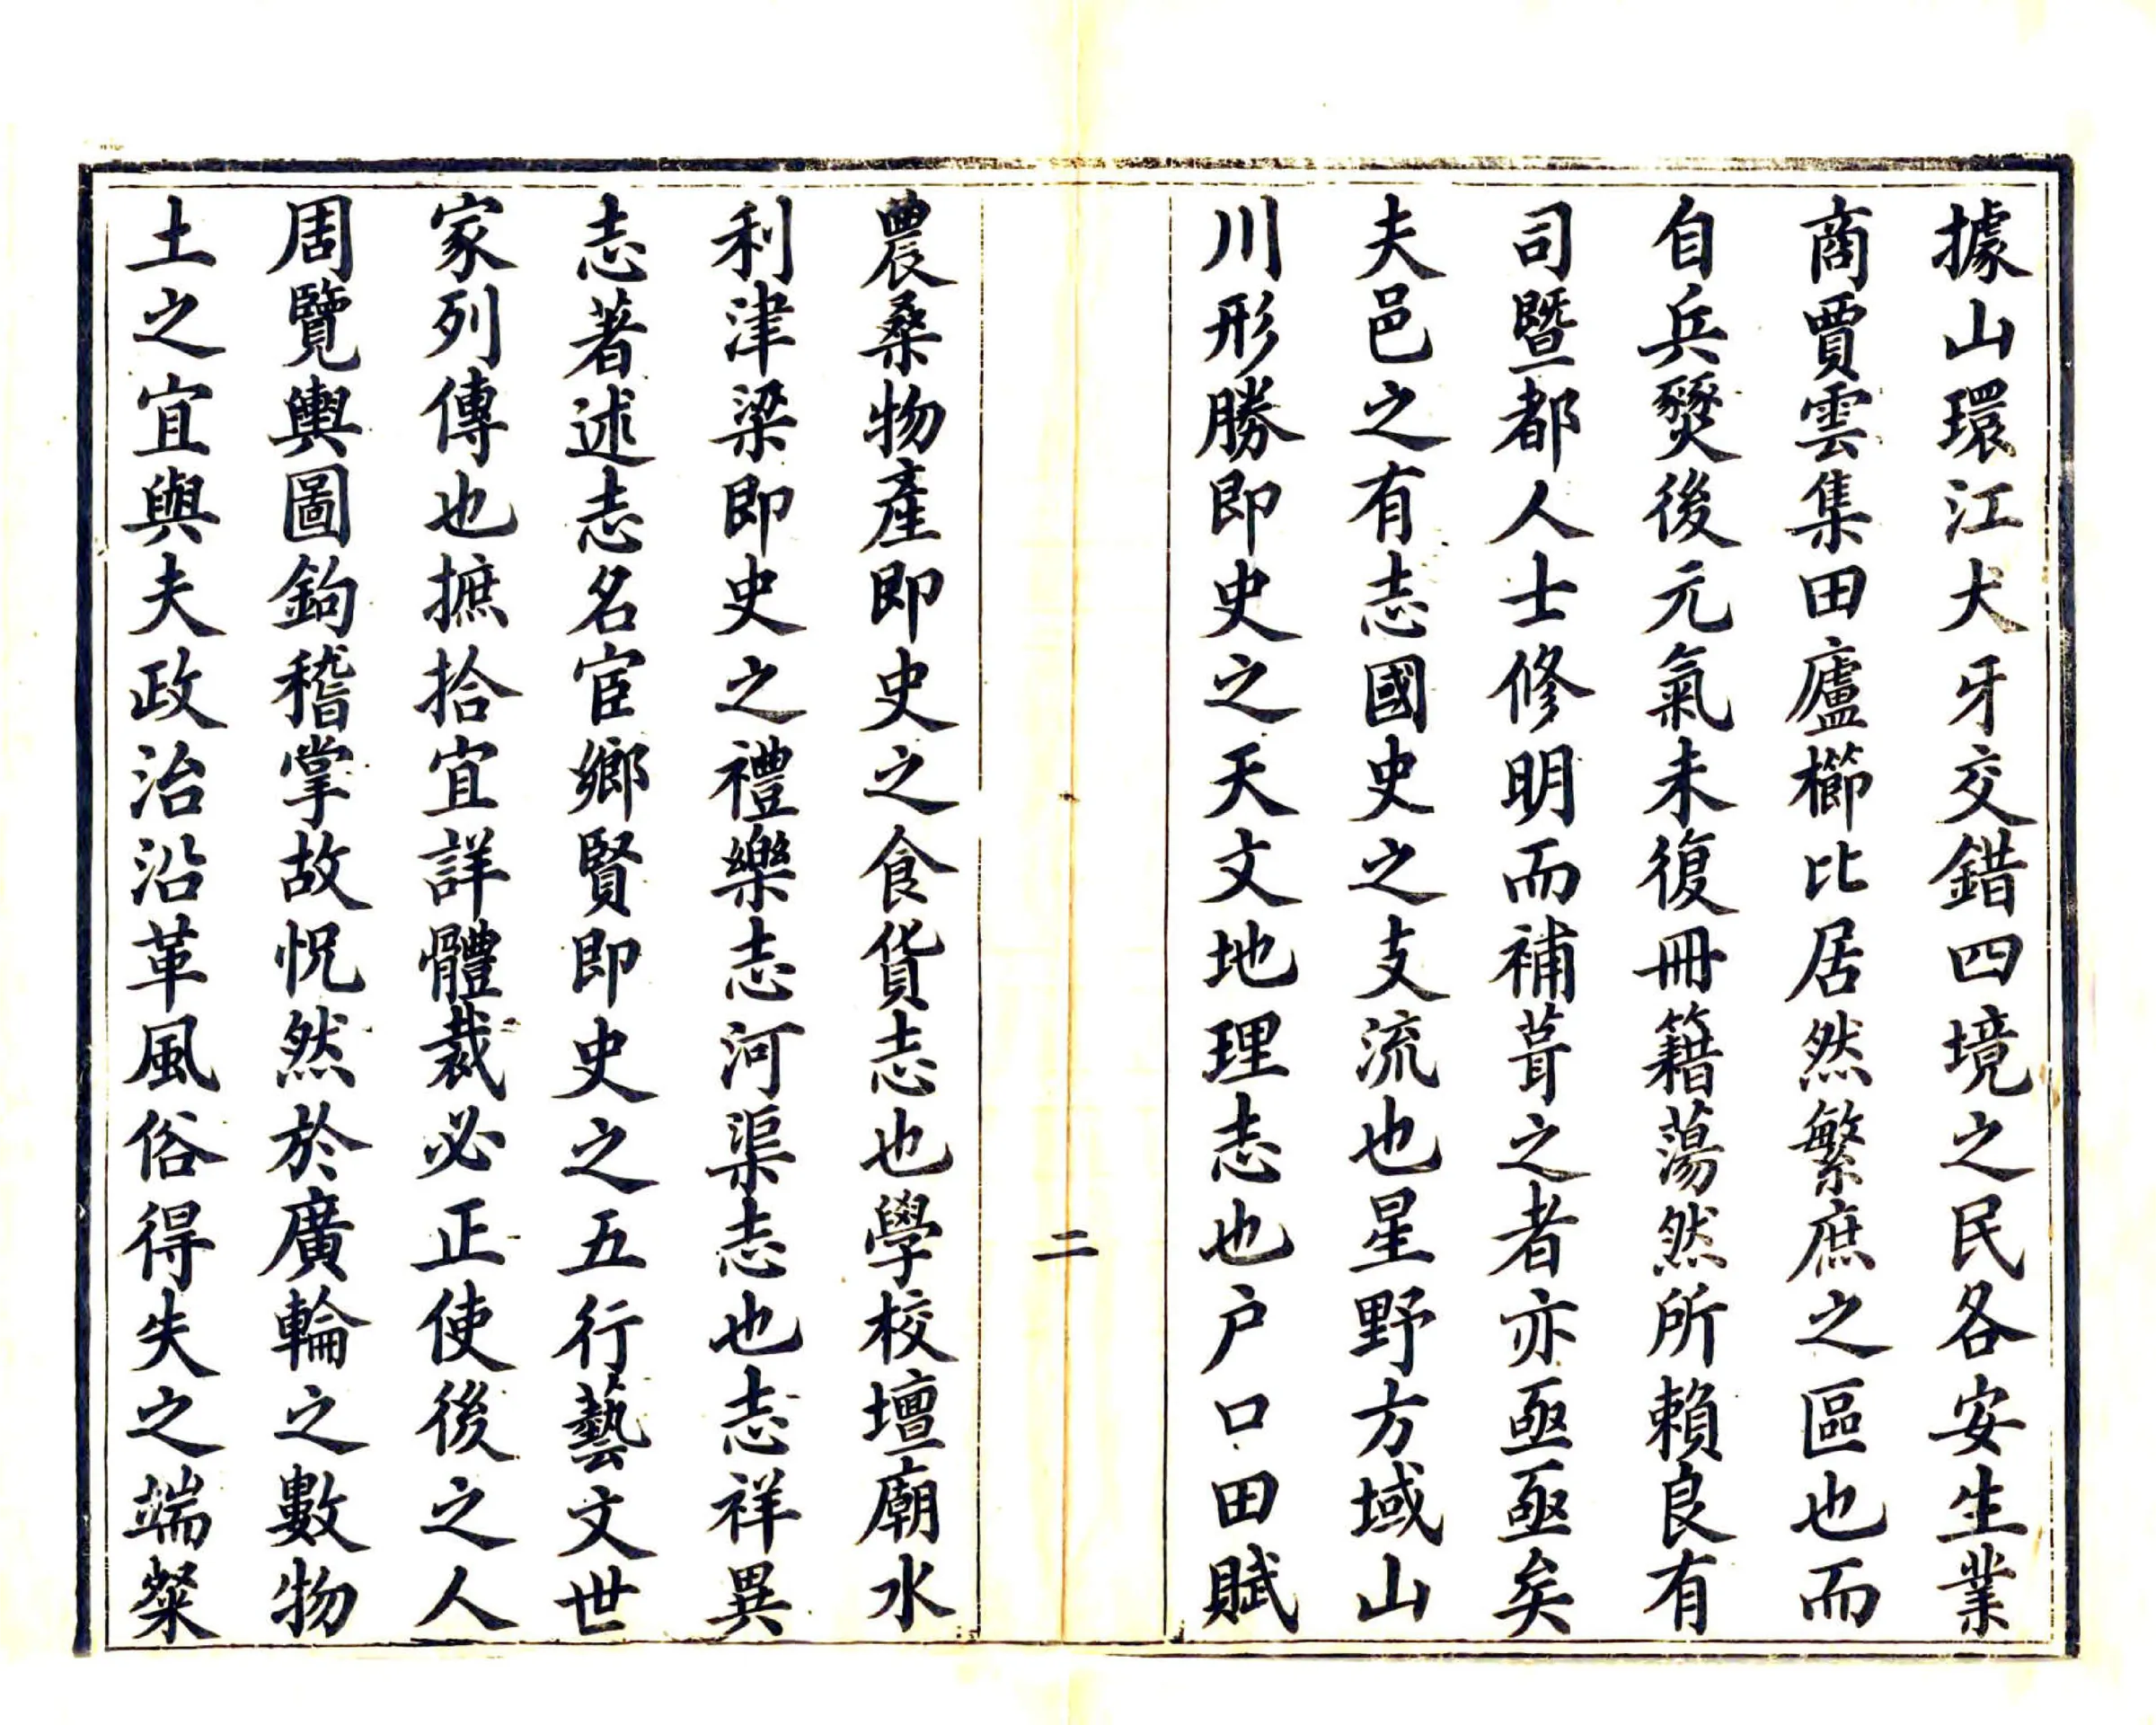 據山環江犬牙交錯四境之民各安生業
商賈雲集田廬櫛比居然繁庶之區也而
自兵燹後元氣未復冊籍蕩然所賴良有
司暨都人士修明而補葺之者亦亟亟矣
夫邑之有志國史之支流也星野方域山
川形勝即史之天文地理志也户口田賦
二
農桑物產即史之食貨志也學校壇廟水
利津梁即史之禮樂志河渠志也志祥異
志著述志名宦鄉賢即史之五行藝文世
家列傳也摭拾宜詳體裁必正使後之人
周覽輿圖鉤稽掌故怳然於廣輪之數物
土之宜與夫政治沿革風俗得失之端粲